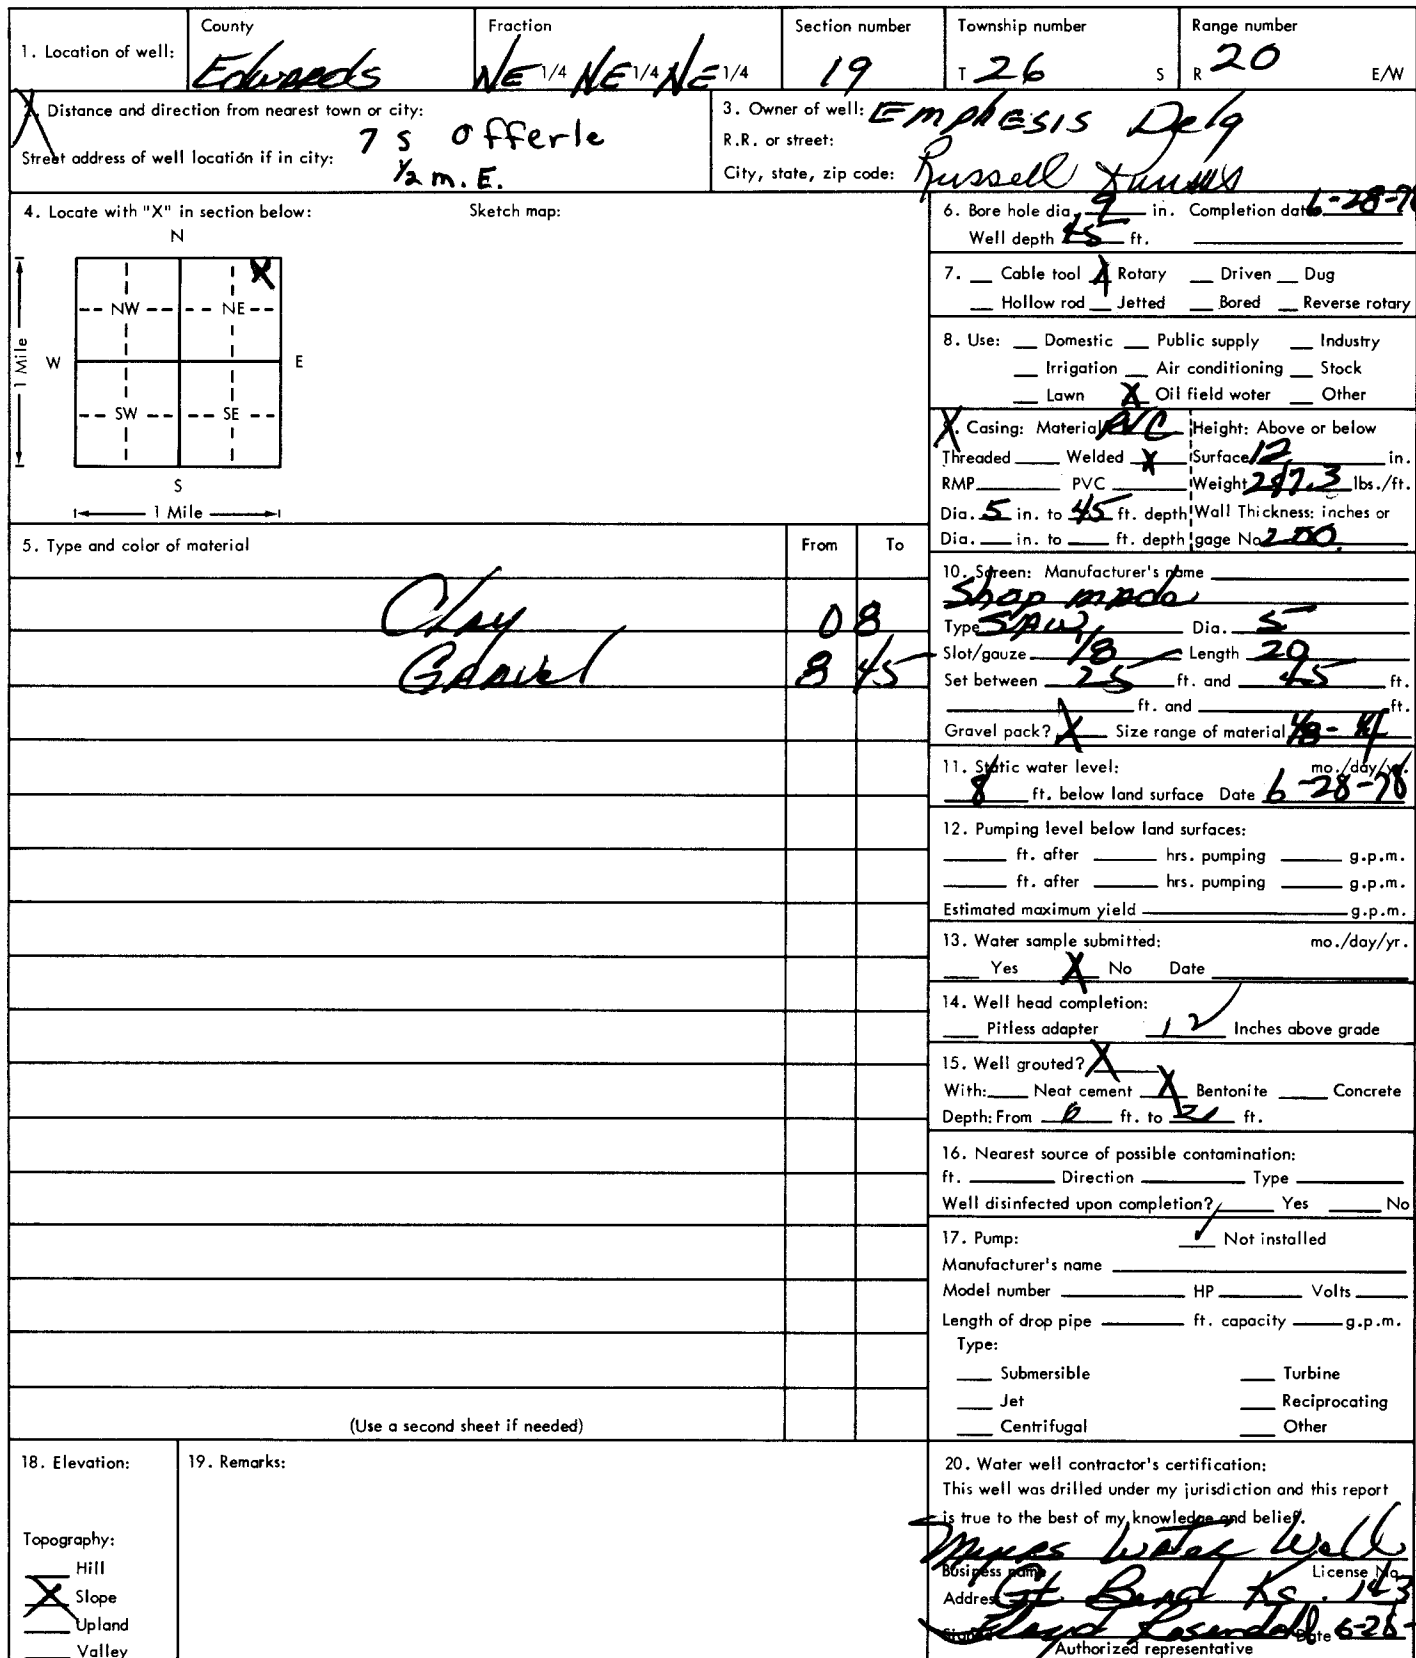 County Fraction Section number Township number Range number
1. Location of well: Edwards NE 1/4 NE 1/4 NE 1/4 19 T 26 S R 20 E/W
X Distance and direction from nearest town or city: 7 S Offerle
Street address of well location if in city: 1/2 m. E.
3. Owner of well: Emphesis Delg
R.R. or street:
City, state, zip code: Russell Kansas
4. Locate with "X" in section below: Sketch map:
N
NW NE X
W E
1 Mile
SW SE
S
1 Mile
5. Type and color of material From To
Clay 0 8
Gravel 8 45
(Use a second sheet if needed)
6. Bore hole dia. 9 in. Completion date 6-28-78
Well depth 45 ft.
7. Cable tool X Rotary Driven Dug
Hollow rod Jetted Bored Reverse rotary
8. Use: Domestic Public supply Industry
Irrigation Air conditioning Stock
Lawn X Oil field water Other
X Casing: Material PVC Height: Above or below
Threaded Welded X Surface 12 in.
RMP PVC Weight lbs./ft.
Dia. 5 in. to 45 ft. depth Wall Thickness: inches or
Dia. in. to ft. depth gage No. 200
10. Screen: Manufacturer's name
Shop made
Type Dia. 5
Slot/gauze 1/8 Length 20
Set between 25 ft. and 45 ft.
ft. and ft.
Gravel pack? X Size range of material 1/8 - 1/4
11. Static water level: mo./day/yr.
8 ft. below land surface Date 6-28-78
12. Pumping level below land surfaces:
ft. after hrs. pumping g.p.m.
ft. after hrs. pumping g.p.m.
Estimated maximum yield g.p.m.
13. Water sample submitted: mo./day/yr.
Yes X No Date
14. Well head completion:
Pitless adapter 12 Inches above grade
15. Well grouted? X
With: Neat cement X Bentonite Concrete
Depth: From 0 ft. to ft.
16. Nearest source of possible contamination:
ft. Direction Type
Well disinfected upon completion? Yes No
17. Pump: ✓ Not installed
Manufacturer's name
Model number HP Volts
Length of drop pipe ft. capacity g.p.m.
Type:
Submersible Turbine
Jet Reciprocating
Centrifugal Other
18. Elevation:
Topography:
Hill
X Slope
Upland
Valley
19. Remarks:
20. Water well contractor's certification:
This well was drilled under my jurisdiction and this report
is true to the best of my knowledge and belief.
Myers Water Well
Business name License No.
Address Gt. Bend Ks. 143
Signed Floyd Rosendahl Date
Authorized representative